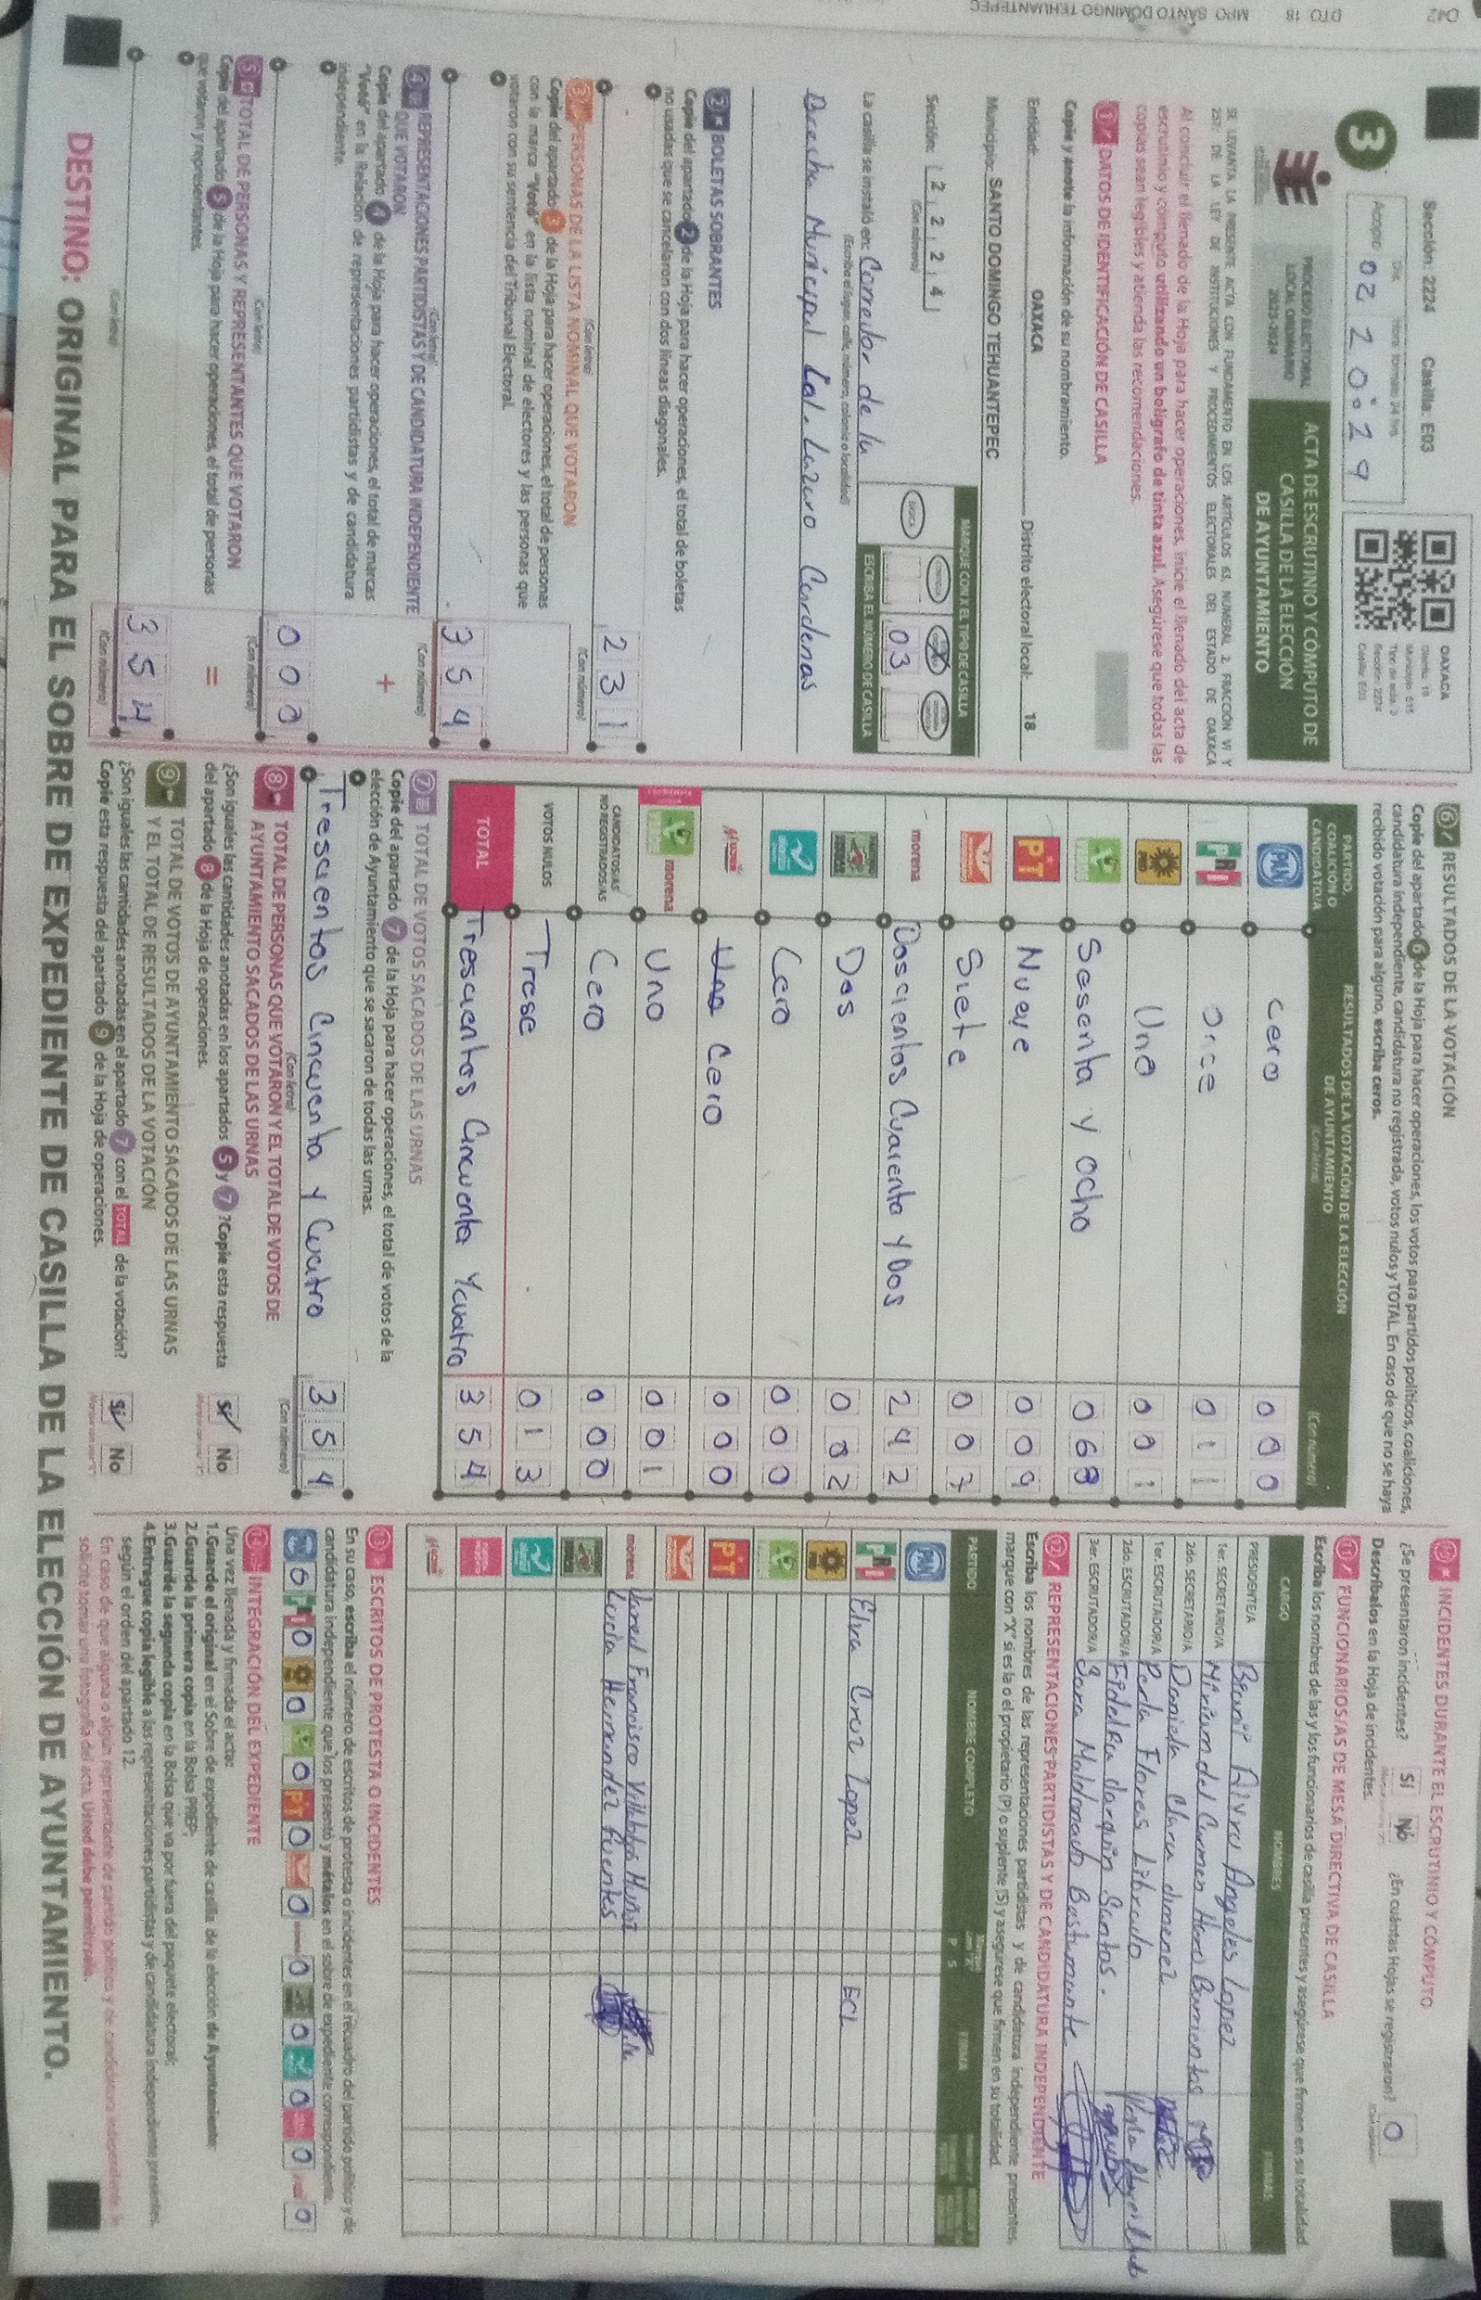 042 DTO 18 MPO SANTO DOMINGO TEHUANTEPEC
Sección: 2224 Casilla: E03
Acopio 02 20:29
OAXACA
3
PROCESO ELECTORAL
LOCAL ORDINARIO
2023-2024
ACTA DE ESCRUTINIO Y CÓMPUTO DE
CASILLA DE LA ELECCIÓN
DE AYUNTAMIENTO
SE LEVANTA LA PRESENTE ACTA CON FUNDAMENTO EN LOS ARTÍCULOS 63, NUMERAL 2, FRACCIÓN VI Y
257; DE LA LEY DE INSTITUCIONES Y PROCEDIMIENTOS ELECTORALES DEL ESTADO DE OAXACA
Al concluir el llenado de la Hoja para hacer operaciones, inicie el llenado del acta de
escrutinio y cómputo utilizando un bolígrafo de tinta azul. Asegúrese que todas las
copias sean legibles y atienda las recomendaciones.
1 DATOS DE IDENTIFICACIÓN DE CASILLA
Copie y anote la información de su nombramiento.
Entidad: OAXACA Distrito electoral local: 18
Municipio: SANTO DOMINGO TEHUANTEPEC
Sección: 2 2 2 4
(Con número)
MARQUE CON X EL TIPO DE CASILLA
03
ESCRIBA EL NÚMERO DE CASILLA
La casilla se instaló en: Corredor de la
(Escriba el lugar, calle, número, colonia o localidad)
Derecha Municipal Col. Lazaro Cardenas
2 BOLETAS SOBRANTES
Copie del apartado 2 de la Hoja para hacer operaciones, el total de boletas
no usadas que se cancelaron con dos líneas diagonales.
231
(Con letra) (Con número)
3 PERSONAS DE LA LISTA NOMINAL QUE VOTARON
Copie del apartado 3 de la Hoja para hacer operaciones, el total de personas
con la marca "Votó" en la lista nominal de electores y las personas que
votaron con su sentencia del Tribunal Electoral.
354
(Con letra) (Con número)
4 REPRESENTACIONES PARTIDISTAS Y DE CANDIDATURA INDEPENDIENTE
QUE VOTARON
Copie del apartado 4 de la Hoja para hacer operaciones, el total de marcas
"Votó" en la Relación de representaciones partidistas y de candidatura
independiente.
+
000
(Con letra) (Con número)
5 TOTAL DE PERSONAS Y REPRESENTANTES QUE VOTARON
Copie del apartado 5 de la Hoja para hacer operaciones, el total de personas
que votaron y representantes.
=
354
(Con letra) (Con número)
6 RESULTADOS DE LA VOTACIÓN
Copie del apartado 6 de la Hoja para hacer operaciones, los votos para partidos políticos, coaliciones,
candidatura independiente, candidatura no registrada, votos nulos y TOTAL. En caso de que no se haya
recibido votación para alguno, escriba ceros.
PARTIDO, COALICIÓN O CANDIDATO/A
RESULTADOS DE LA VOTACIÓN DE LA ELECCIÓN
DE AYUNTAMIENTO
(Con letra) (Con número)
PAN Cero 000
PRI Once 011
PRD Uno 001
VERDE Sesenta y ocho 068
PT Nueve 009
Siete 007
morena Doscientos Cuarenta y Dos 242
Dos 002
Cero 000
Mujer Uno Cero 000
VERDE morena Uno 001
CANDIDATOS/AS
NO REGISTRADOS/AS Cero 000
VOTOS NULOS Trese 013
TOTAL Trescientos Cincuenta Y cuatro 354
7 TOTAL DE VOTOS SACADOS DE LAS URNAS
Copie del apartado 7 de la Hoja para hacer operaciones, el total de votos de la
elección de Ayuntamiento que se sacaron de todas las urnas.
Trescientos Cincuenta y Cuatro 354
(Con letra) (Con número)
8 TOTAL DE PERSONAS QUE VOTARON Y EL TOTAL DE VOTOS DE
AYUNTAMIENTO SACADOS DE LAS URNAS
¿Son iguales las cantidades anotadas en los apartados 5 y 7 ? Copie esta respuesta
del apartado 8 de la Hoja de operaciones.
Sí No
9 TOTAL DE VOTOS DE AYUNTAMIENTO SACADOS DE LAS URNAS
Y EL TOTAL DE RESULTADOS DE LA VOTACIÓN
¿Son iguales las cantidades anotadas en el apartado 7 con el TOTAL de la votación?
Copie esta respuesta del apartado 9 de la Hoja de operaciones.
Sí No
10 INCIDENTES DURANTE EL ESCRUTINIO Y CÓMPUTO
¿Se presentaron incidentes? Sí No ¿En cuántas Hojas se registraron? 0
Descríbalos en la Hoja de incidentes.
11 FUNCIONARIOS/AS DE MESA DIRECTIVA DE CASILLA
Escriba los nombres de las y los funcionarios de casilla presentes y asegúrese que firmen en su totalidad.
CARGO NOMBRES FIRMAS
PRESIDENTE/A Alvru Angeles Lopez
1er. SECRETARIO/A Miriam del Carmen Barrientos
2do. SECRETARIO/A Daniela Claru Jimenez
1er. ESCRUTADOR/A Perla Flores Librado
2do. ESCRUTADOR/A Fidelfa Jarquin Santos.
3er. ESCRUTADOR/A Sara Maldonado Bustamante
12 REPRESENTACIONES PARTIDISTAS Y DE CANDIDATURA INDEPENDIENTE
Escriba los nombres de las representaciones partidistas y de candidatura independiente presentes,
marque con "X" si es la o el propietario (P) o suplente (S) y asegúrese que firmen en su totalidad.
PARTIDO NOMBRE COMPLETO P S FIRMA
PAN
PRI Elva Cruz Lopez ECL
PRD
VERDE
PT
morena Jared Francisco Villalobos Muñoz
Lucia Hernandez Fuentes
Mujer
13 ESCRITOS DE PROTESTA O INCIDENTES
En su caso, escriba el número de escritos de protesta o incidentes en el recuadro del partido político y de
candidatura independiente que los presentó y métalos en el sobre de expediente correspondiente.
0 0 0 0 0 0 0 0 0 0 0
14 INTEGRACIÓN DEL EXPEDIENTE
Una vez llenada y firmada el acta:
1.Guarde el original en el Sobre de expediente de casilla de la elección de Ayuntamiento;
2.Guarde la primera copia en la Bolsa PREP;
3.Guarde la segunda copia en la Bolsa que va por fuera del paquete electoral;
4.Entregue copia legible a las representaciones partidistas y de candidatura independiente presentes,
según el orden del apartado 12.
En caso de que alguna o algún representante de partido político y de candidatura independiente le
solicite tomar una fotografía del acta, Usted debe permitírselo.
DESTINO: ORIGINAL PARA EL SOBRE DE EXPEDIENTE DE CASILLA DE LA ELECCIÓN DE AYUNTAMIENTO.